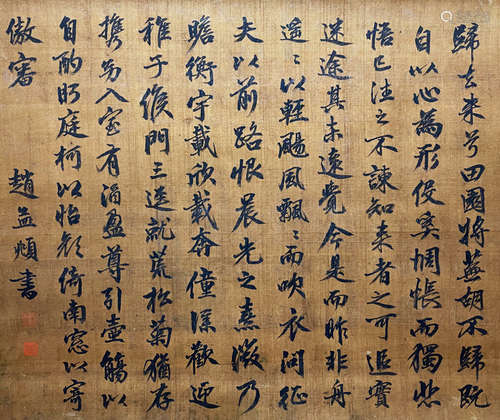 歸去来兮田園将蕪胡不歸既
自以心為形役奚惆悵而獨悲
悟已往之不諫知来者之可追實
迷途其未遠覺今是而昨非舟
遥〻以輕颺風飄〻而吹衣問征
夫以前路恨晨光之熹微乃
瞻衡宇載欣載奔僮僕歡迎
稚子候門三逕就荒松菊猶存
攜幼入室有酒盈尊引壺觴以
自酌眄庭柯以怡顔倚南窓以寄
傲審
趙孟頫書